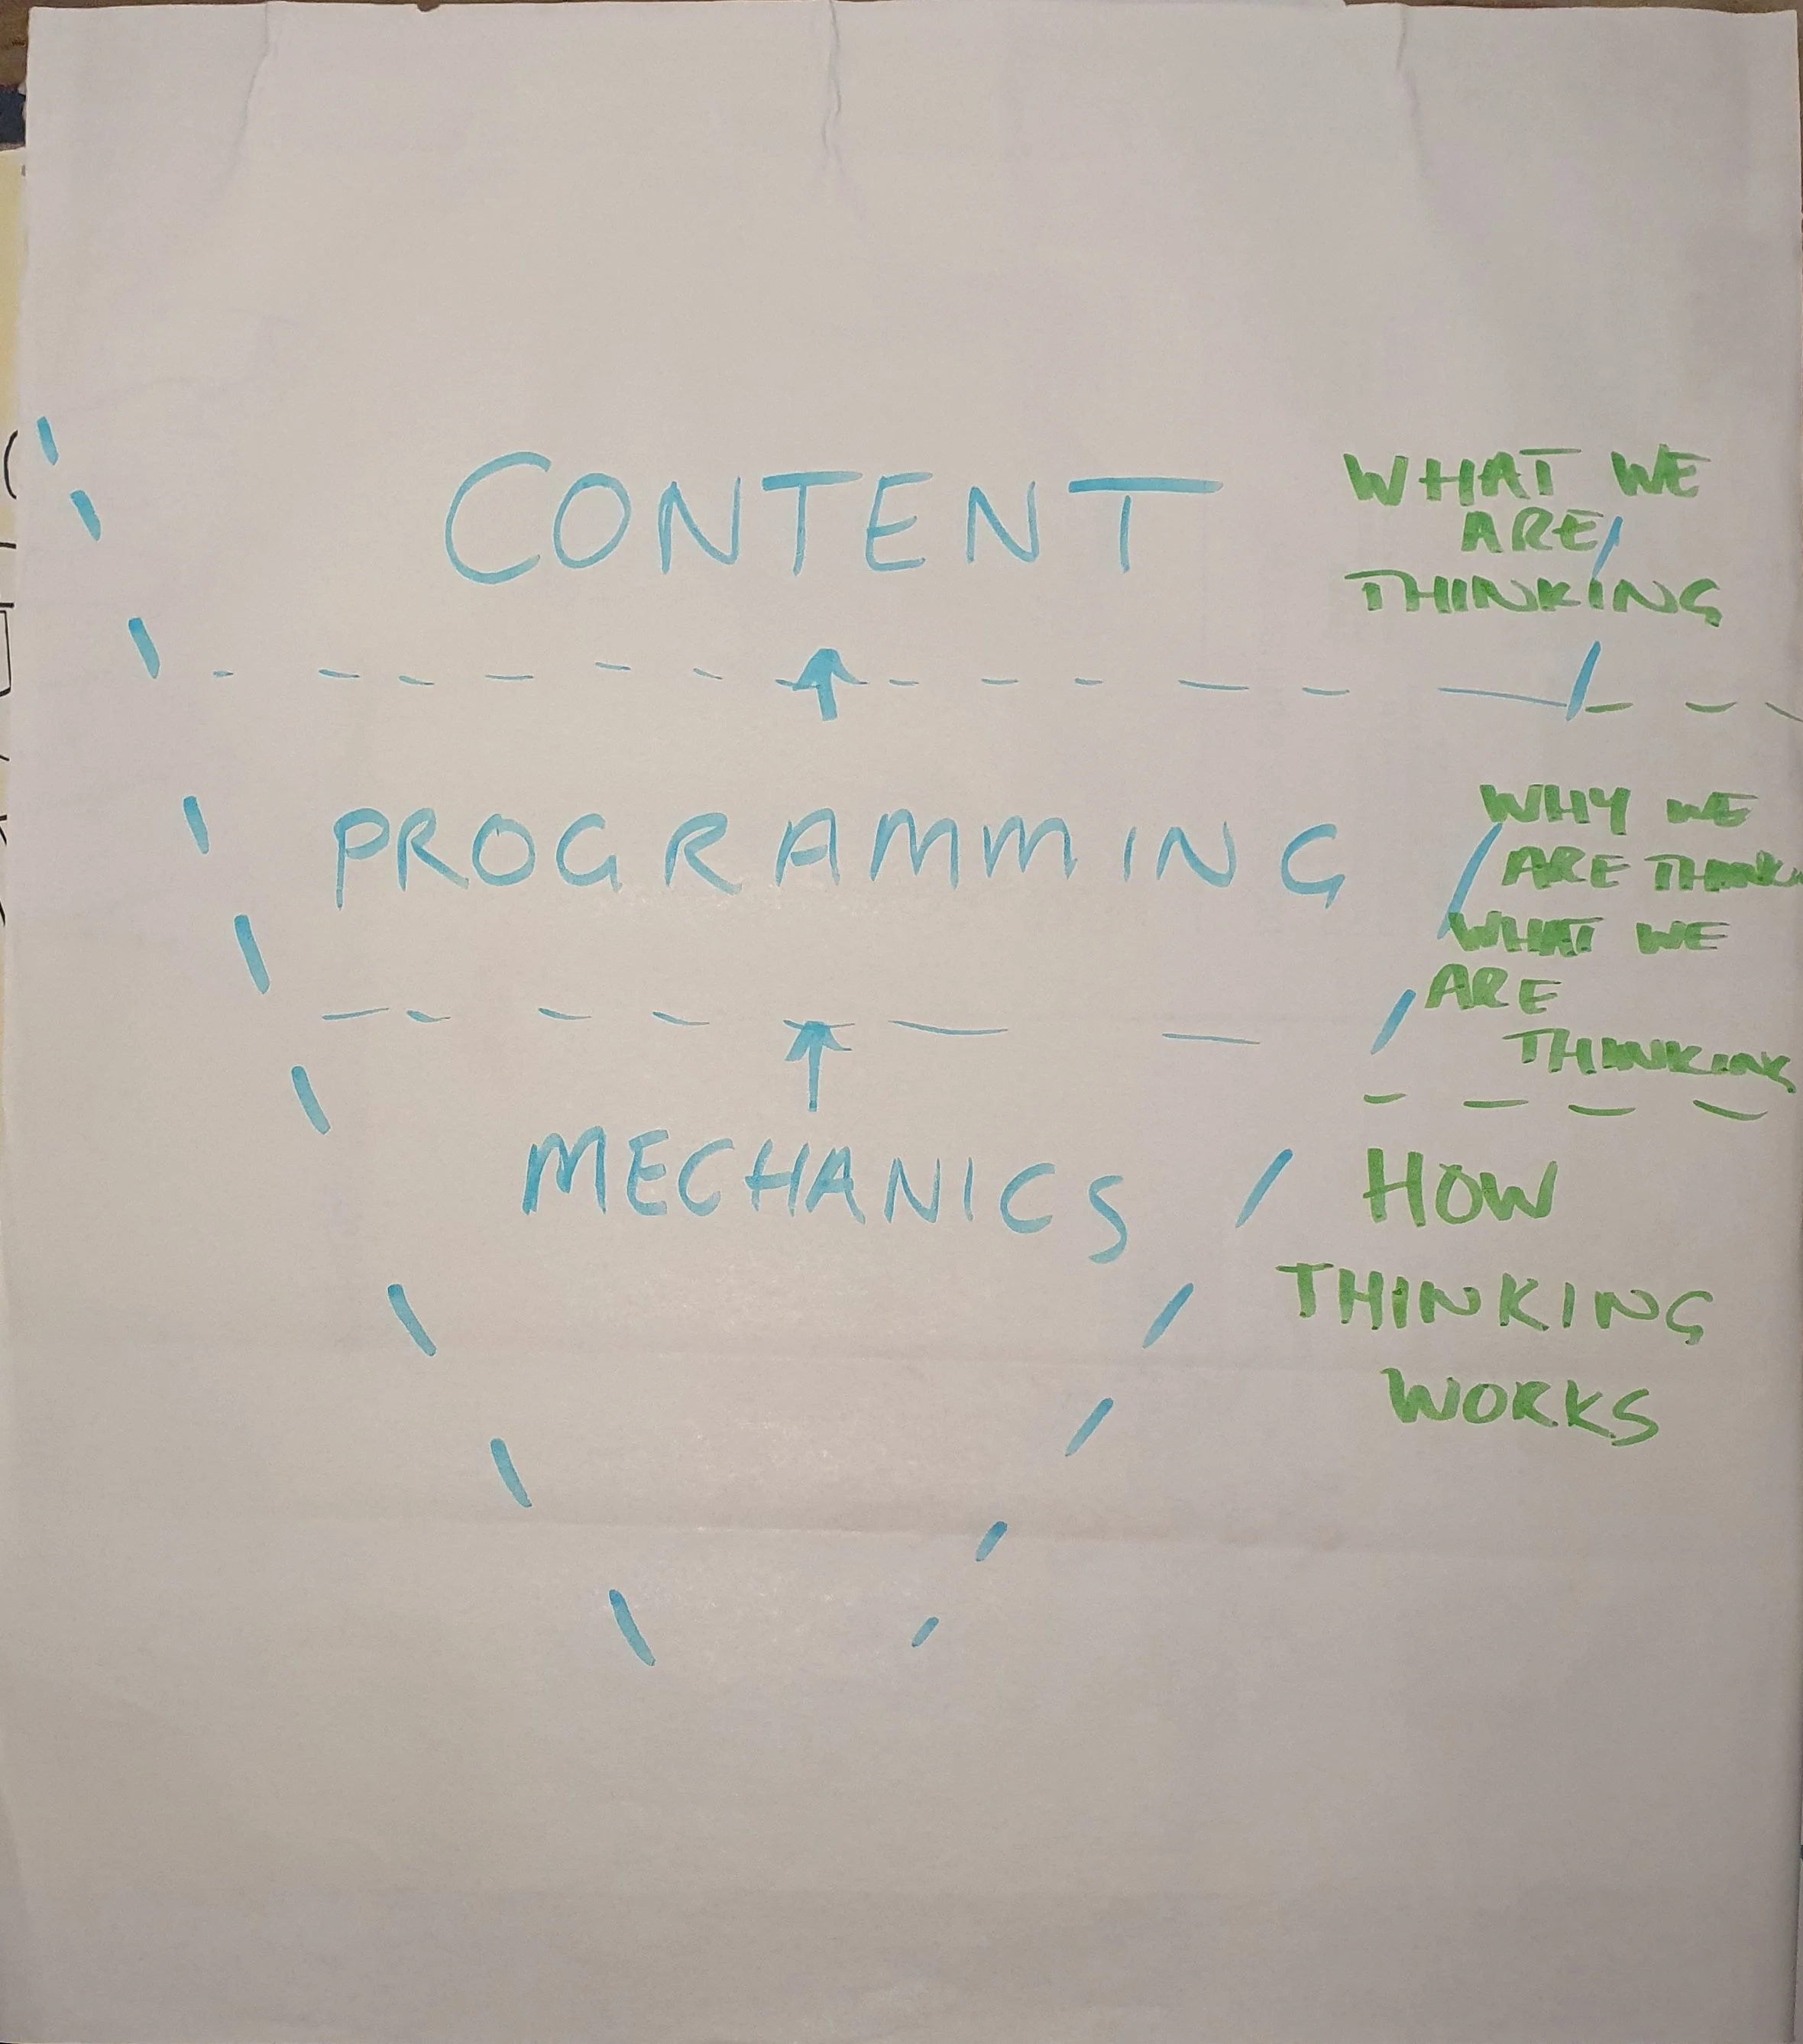 CONTENT
WHAT WE
ARE
THINKING
PROGRAMMING
WHY WE
ARE THINK
WHAT WE
ARE
THINKING
MECHANICS
HOW
THINKING
WORKS